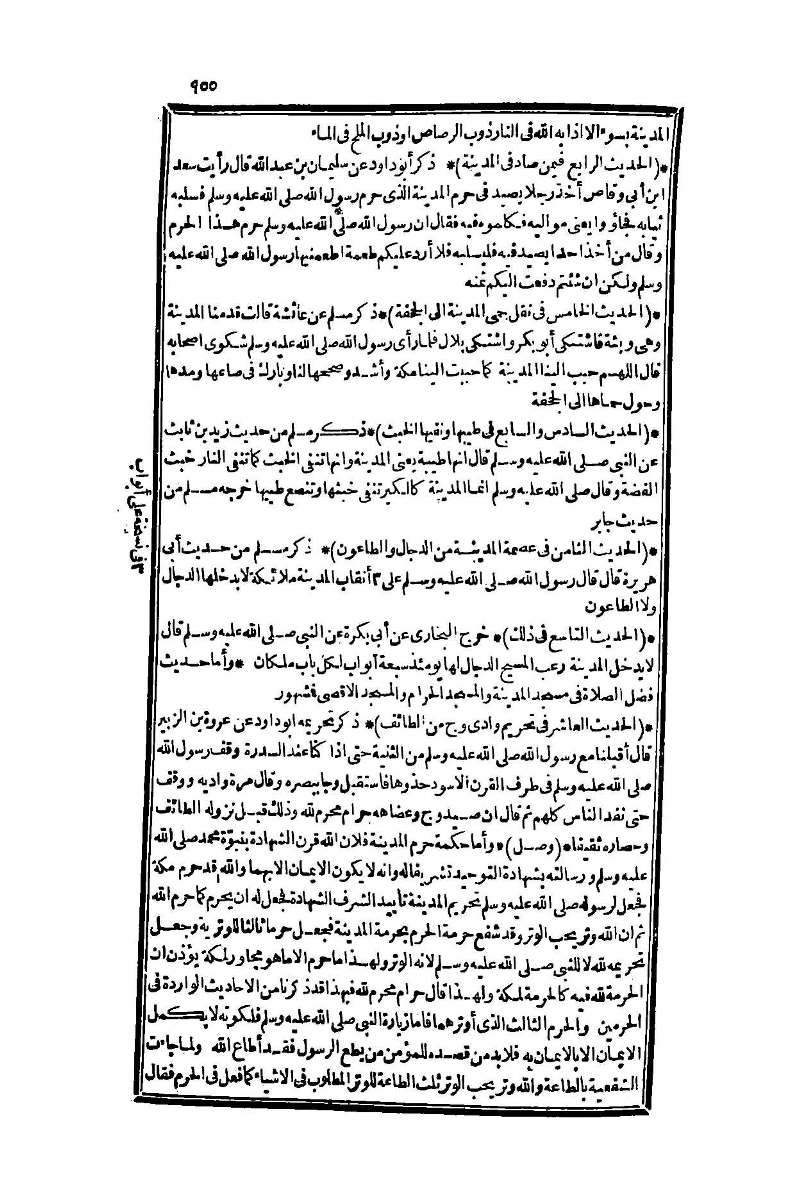 ٩٥٥
المدينة بسوء الا اذابه الله فى النار ذوب الرصاص او ذوب الملح فى الماء
*(الحديث الرابع فيمن صاد فى المدينة)* ذكر أبو داود عن سليمان بن عبد الله قال رأيت سعد
ابن أبى وقاص أخذ رجلا يصيد فى حرم المدينة الذى حرم رسول الله صلى الله عليه وسلم فسلبه
ثيابه فجاؤا يعنى مواليه فكلموه فيه فقال ان رسول الله صلى الله عليه وسلم حرم هذا الحرم
وقال من أخذ أحدا يصيد فيه فليسلبه فلا أرد عليكم طعمة اطعمنيها رسول الله صلى الله عليه
وسلم ولكن ان شئتم دفعت اليكم ثمنه
*(الحديث الخامس فى نقل حمى المدينة الى الجحفة)* ذكر مسلم عن عائشة قالت قدمنا المدينة
وهى وبئة فاشتكى أبو بكر واشتكى بلال فلما رأى رسول الله صلى الله عليه وسلم شكوى اصحابه
قال اللهم حبب الينا المدينة كما حببت الينا مكة وأشد وصححها لنا وبارك فى صاعها ومدها
وحول حماها الى الجحفة
*(الحديث السادس والسابع فى طيبها ونفيها الخبث)* ذكر مسلم من حديث زيد بن ثابت
عن النبى صلى الله عليه وسلم قال انها طيبة يعنى المدينة وانها تنفى الخبث كما تنفى النار خبث
الفضة وقال صلى الله عليه وسلم انما المدينة كالكير تنفى خبثها وتنصع طيبها خرجه مسلم من
حديث جابر
*(الحديث الثامن فى عصمة المدينة من الدجال والطاعون)* ذكر مسلم من حديث أبى
هريرة قال قال رسول الله صلى الله عليه وسلم على ٣ أنقاب المدينة ملائكة لا يدخلها الدجال
ولا الطاعون
*(الحديث التاسع فى ذلك)* خرج البخارى عن أبى بكرة عن النبى صلى الله عليه وسلم قال
لا يدخل المدينة رعب المسيح الدجال لها يومئذ سبعة أبواب لكل باب ملكان * وأما حديث
فضل الصلاة فى مسجد المدينة والمسجد الحرام والمسجد الاقصى فمشهور
*(الحديث العاشر فى تحريم وادى وج من الطائف)* ذكر تحريمه ابو داود عن عروة بن الزبير
قال أقبلنا مع رسول الله صلى الله عليه وسلم من الثنية حتى اذا كنا عند السدرة وقف رسول الله
صلى الله عليه وسلم فى طرف القرن الاسود حذوها فاستقبل وجا ببصره وقال مرة واديه ووقف
حتى نفد الناس كلهم ثم قال ان صيد وج وعضاهه حرام محرم لله وذلك قبل نزوله الطائف
وحصاره ثقيفا *(وصل)* وأما حكمة حرم المدينة فلان الله قرن الشهادة بنبوة محمد صلى الله
عليه وسلم ورسالته بشهادة التوحيد تشريفا له وانه لا يكون الايمان الا بهما والله قد حرم مكة
فجعل لرسوله صلى الله عليه وسلم تحريم المدينة تأييد الشرف الشهادة فجعل له ان يحرم كما حرم الله
ثم ان الله وتر يحب الوتر وقد شفع حرمة الحرم بحرمة المدينة فجعل حرما ثالثا للوترية وجعل
تحريمه لله لا للنبى صلى الله عليه وسلم لانه الوتر ولهذا ما حرم الا ما هو مجاور لمكة يؤذن ان
الحرمة لله فيه كالحرمة لمكة ولهذا قال حرام محرم لله فبهذا قد ذكرنا من الاحاديث الواردة فى
الحرمين والحرم الثالث الذى أوترهما فاما زيارة النبى صلى الله عليه وسلم فلكونه لا يكمل
الايمان الا بالايمان به فلا بد من قصده للمؤمن من يطع الرسول فقد أطاع الله ولما جاءت
الشفعية بالطاعة والله وتر يحب الوتر ثلث الطاعة للوتر المطلوب فى الاشياء كما فعل فى الحرم فقال
٣ فى نسخة على أبواب